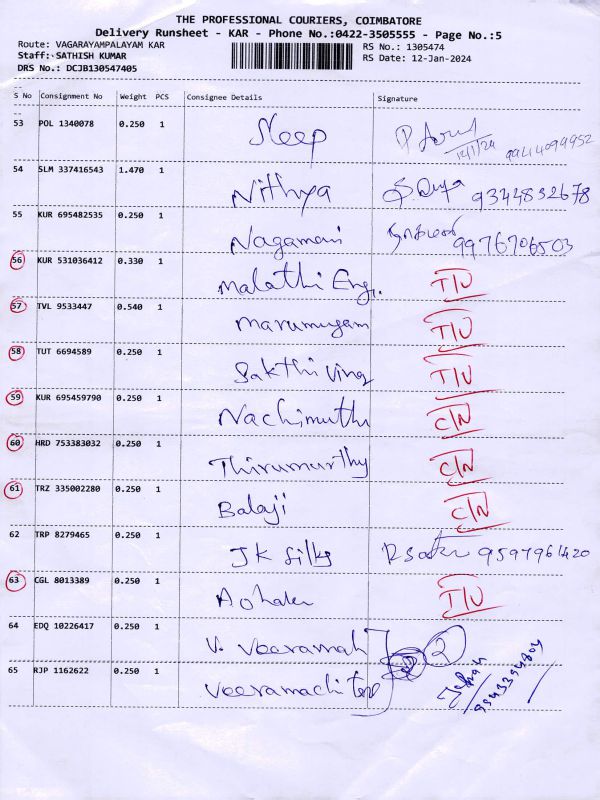 THE PROFESSIONAL COURIERS, COIMBATORE
Delivery Runsheet - KAR - Phone No.:0422-3505555 - Page No.:5
Route: VAGARAYAMPALAYAM KAR
RS No.: 1305474
Staff: SATHISH KUMAR
RS Date: 12-Jan-2024
DRS No.: DCJB130547405
S No Consignment No Weight PCS Consignee Details Signature
53 POL 1340078 0.250 1 Sleep 12/1/24 9944099952
54 SLM 337416543 1.470 1 Nithya 9344832678
55 KUR 695482535 0.250 1 Nagamani 9976706503
56 KUR 531036412 0.330 1 Malathi Eng. T/U
57 TVL 9533447 0.540 1 Marumugam T/U
58 TUT 6694589 0.250 1 Sakthi Ving T/U
59 KUR 695459790 0.250 1 Nachimuthu C/N
60 HRD 753383032 0.250 1 Thirumurthy C/N
61 TRZ 335002280 0.250 1 Balaji C/N
62 TRP 8279465 0.250 1 JK Silks 9597961420
63 CGL 8013389 0.250 1 T/U
64 EDQ 10226417 0.250 1 V. Veeramah 2
65 RJP 1162622 0.250 1 9943394804